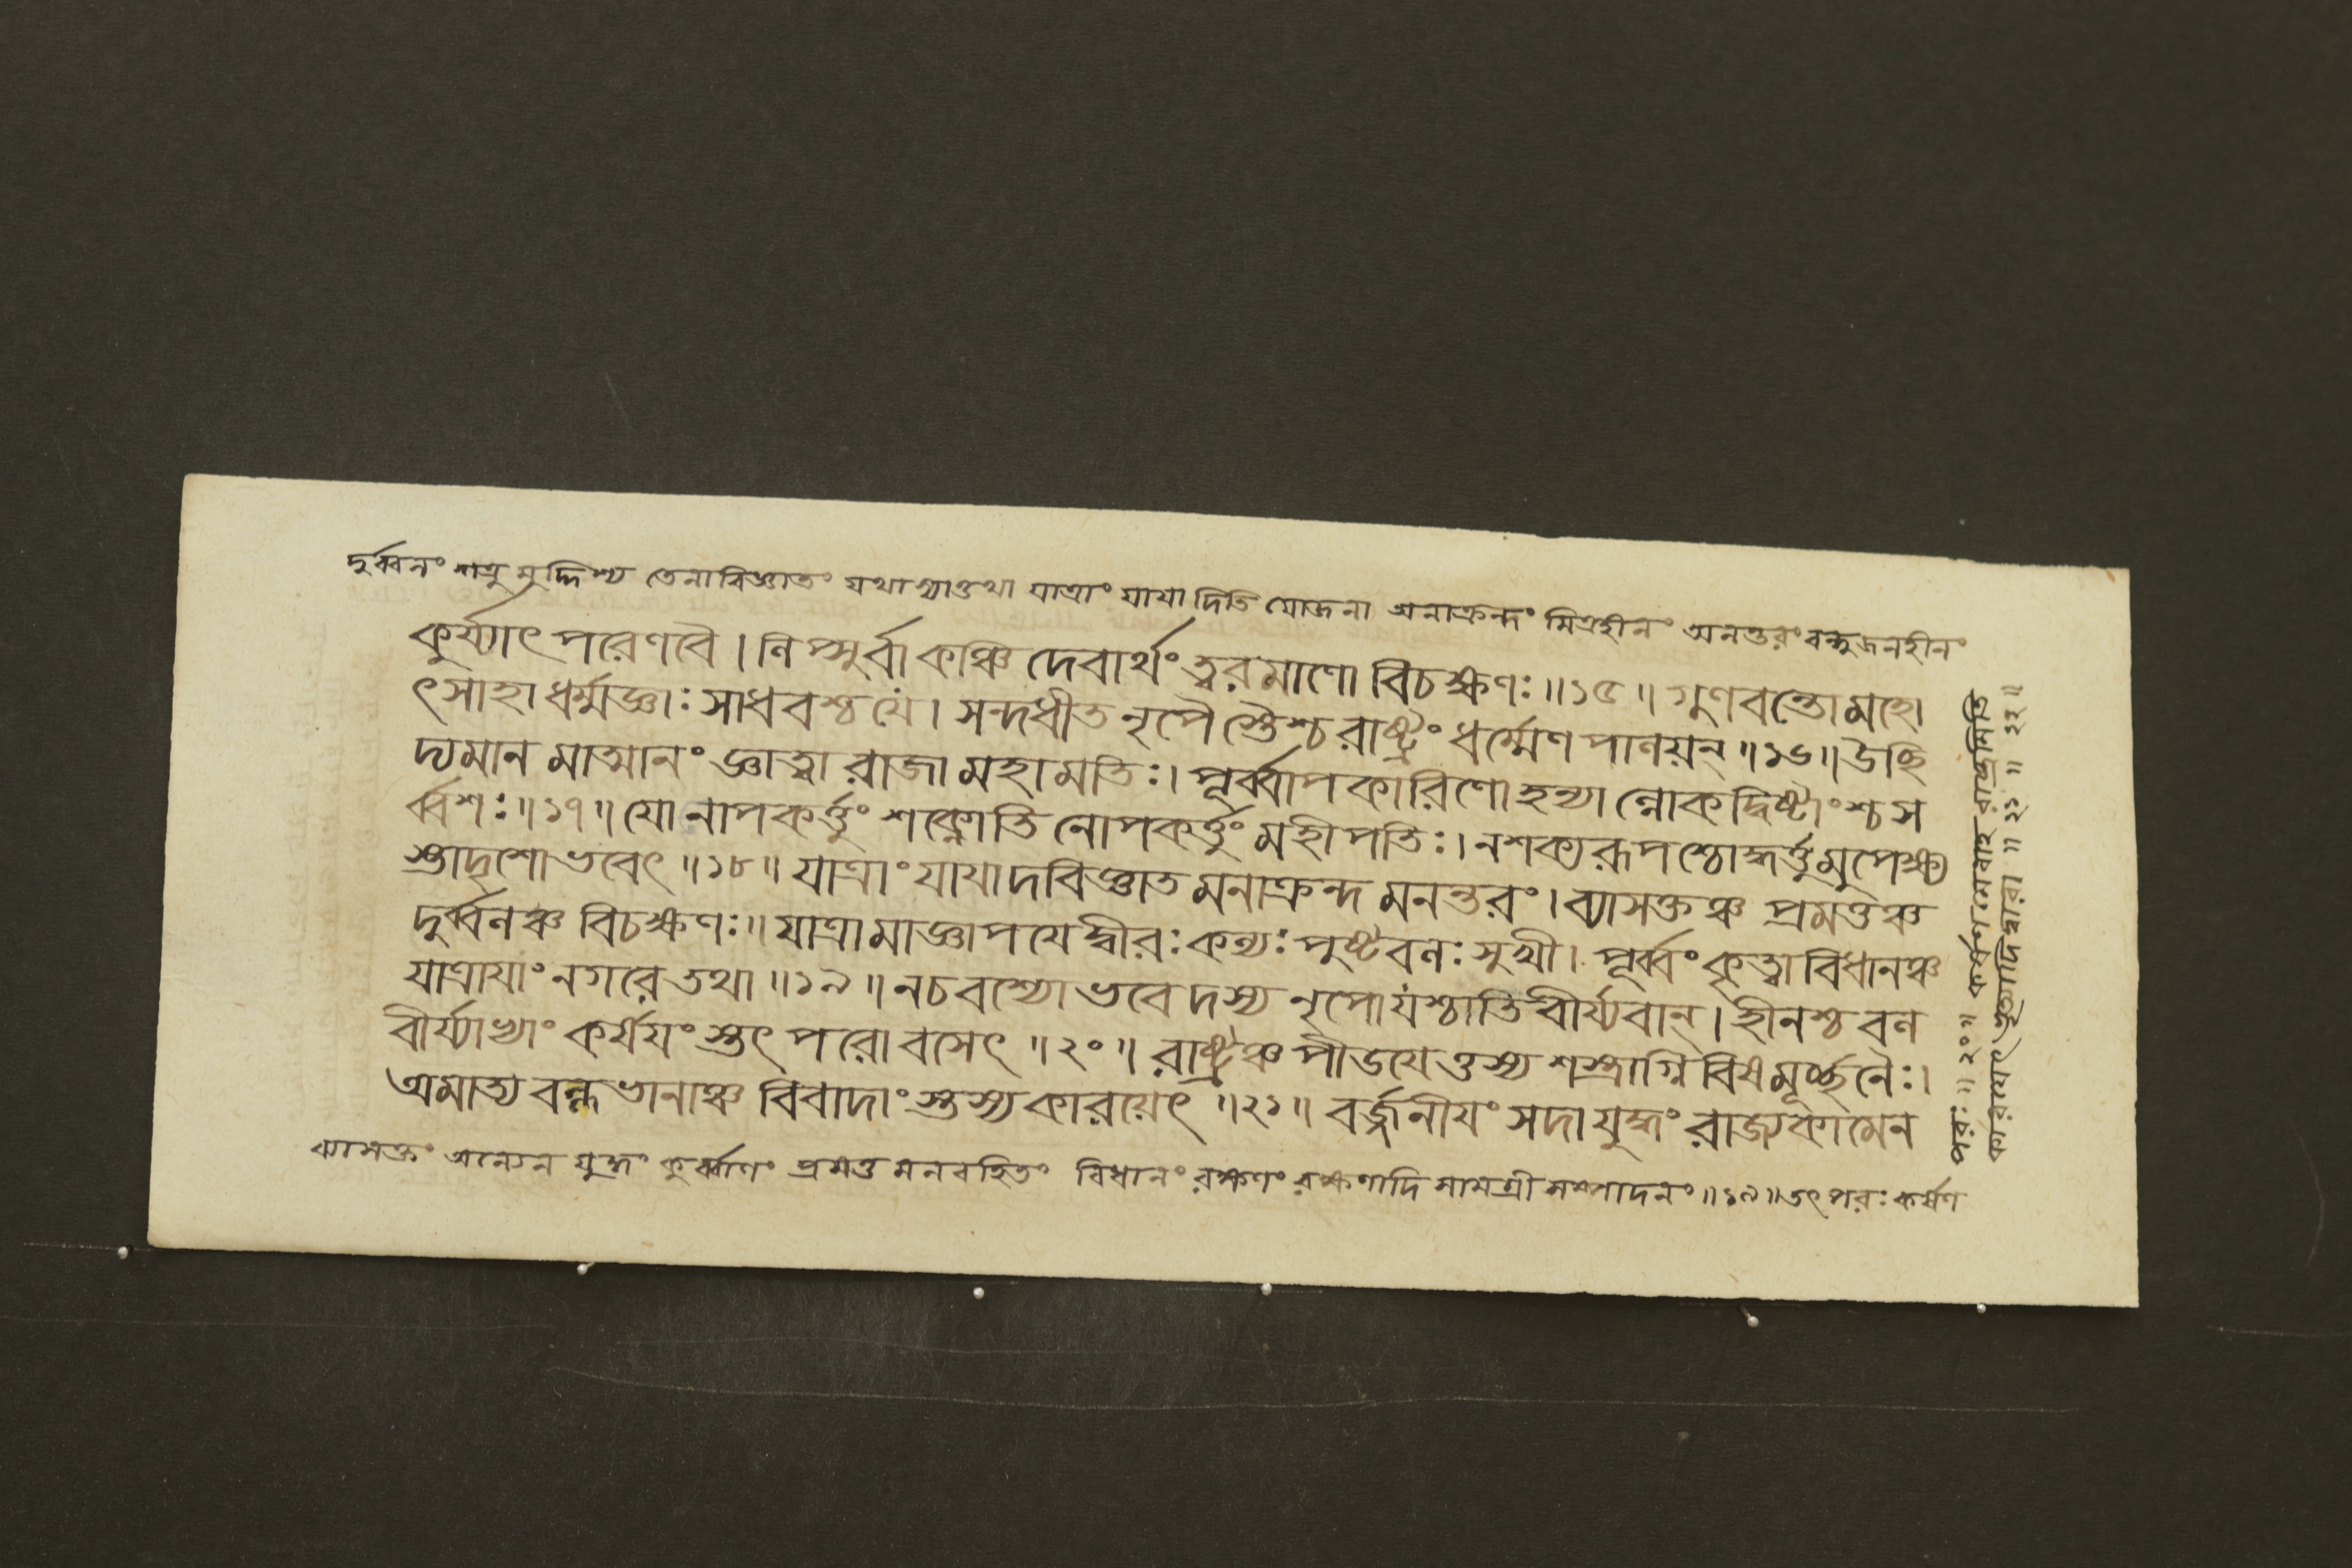 দুর্ব্বলং শত্রু মুদ্দিশ্য তেনাবিজ্ঞাতং যথাস্যাত্তথা যাত্রাং যাযা দিতি যোজনা অনাক্রন্দং মিত্রহীনং অনন্তরং বন্ধুজনহীনং
কুর্য্যাৎ পরেণবৈ । লিপ্সুর্বা কঞ্চি দেবার্থং ত্বরমাণো বিচক্ষণঃ ॥১৫॥ গুণবন্তো মহো
ৎসাহা ধর্ম্মজ্ঞাঃ সাধবশ্চযে । সন্দধীত নৃপৈ স্তৈশ্চ রাষ্ট্রং ধর্ম্মেণ পালয়ন্ ॥১৬॥ উচ্ছি
দ্যমান মাত্মানং জ্ঞাত্বা রাজা মহামতিঃ । পূর্ব্বাপকারিণো হন্যা ল্লোকদ্বিষ্টাংশ্চ স
র্ব্বশঃ ॥১৭॥ যো নাপকর্ত্তুং শক্নোতি নোপকর্ত্তুং মহীপতিঃ । নশক্যরূপশ্চোদ্ধর্ত্তুমুপেক্ষ্য
স্তাদৃশোভবেৎ ॥১৮॥ যাত্রাং যাযাদবিজ্ঞাত মনাক্রন্দ মনন্তরং । ব্যাসক্তঞ্চ প্রমত্তঞ্চ
দুর্ব্বলঞ্চ বিচক্ষণঃ ॥ যাত্রামাজ্ঞাপযেদ্বীরঃ কল্যঃ পুষ্টবলঃ সুখী । পূর্ব্বং কৃত্বা বিধানঞ্চ
যাত্রাযাং নগরে তথা ॥১৯॥ নচবশ্যো ভবেদস্য নৃপোযশ্চাতি বীর্য্যবান্ । হীনশ্চ বল
বীর্য্যাভ্যাং কর্ষযং স্তৎ পরো বসেৎ ॥২০॥ রাষ্ট্রঞ্চ পীডযেত্তস্য শস্ত্রাগ্নি বিষমূর্চ্ছনৈঃ ।
অমাত্য বল্লভানাঞ্চ বিবাদাং স্তস্য কারয়েৎ ॥২১॥ বর্জ্জনীযং সদা যুদ্ধং রাজ্যকামেন
ব্যাসক্তং অন্যেন যুদ্ধং কুর্ব্বাণং প্রমত্ত মনবহিতং বিধানং রক্ষণং রক্ষণাদি সামগ্রী সম্পাদনং ॥১৯॥ তৎ পরঃ কর্ষণ
পরঃ ॥ ২০ ॥ কর্ষণমেবাহ রাষ্ট্রমিতি
কারযেৎ ভৃত্যাদি দ্বারা ॥ ২১ ॥ ২২ ॥